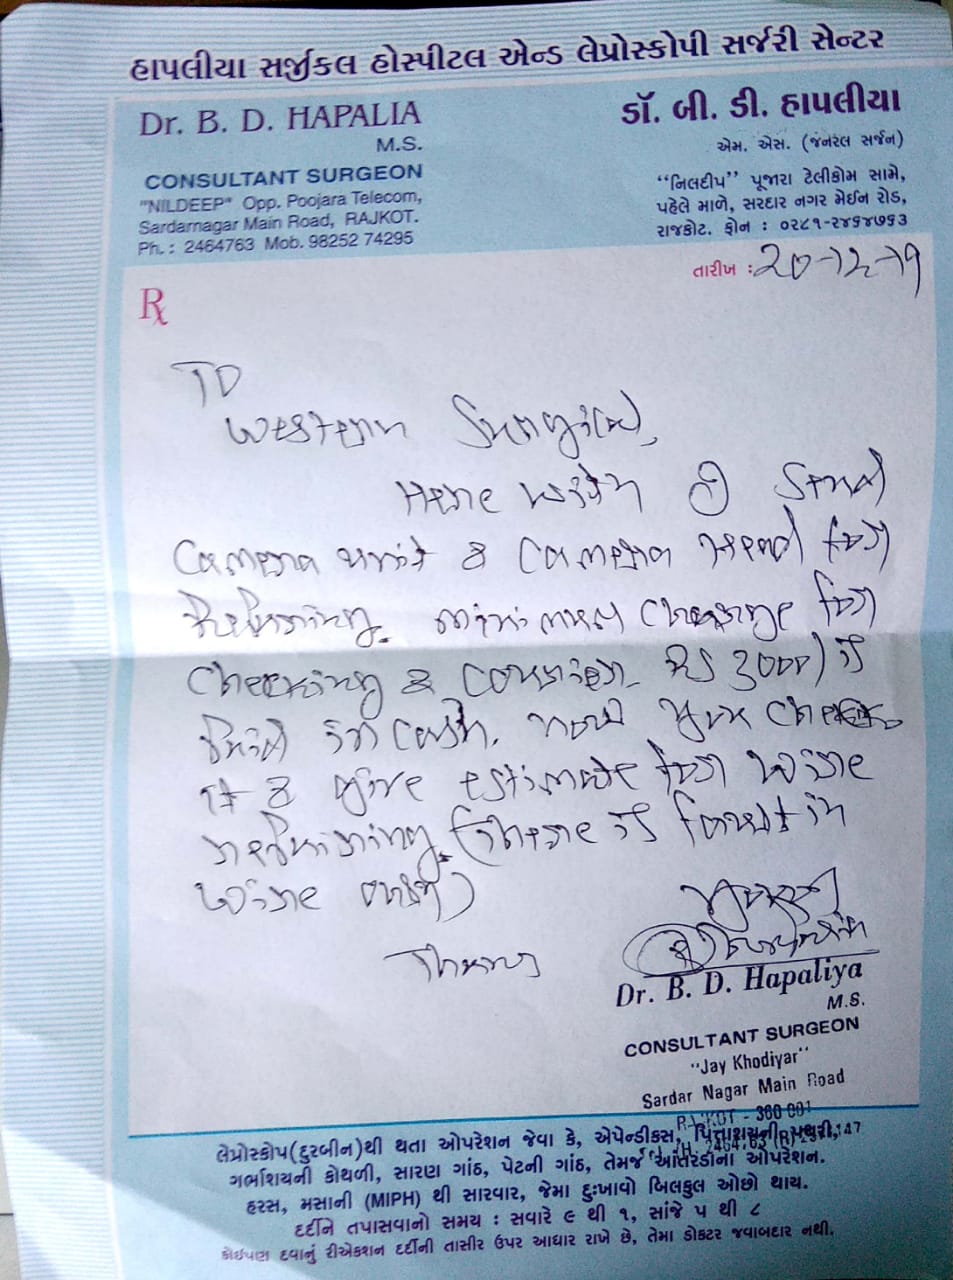 હાપલીયા સર્જીકલ હોસ્પીટલ એન્ડ લેપ્રોસ્કોપી સર્જરી સેન્ટર
Dr. B. D. HAPALIA
M.S.
CONSULTANT SURGEON
"NILDEEP" Opp. Poojara Telecom,
Sardarnagar Main Road, RAJKOT.
Ph. : 2464763 Mob. 98252 74295
ડૉ. બી. ડી. હાપલીયા
એમ. એસ. (જનરલ સર્જન)
"નિલદીપ" પૂજારા ટેલીકોમ સામે,
પહેલે માળે, સરદાર નગર મેઈન રોડ,
રાજકોટ. ફોન : ૦૨૮૧-૨૪૬૪૭૬૩
તારીખ : 20-12-19
Rx
TO
Western Surgical,
Here with I send
Camera unit & Camera head for
Repairing. minimum charge for
checking & courier Rs 3000/ is
paid in cash. now you check
it & give estimate for wire
repairing. (there is fault in
wire only)
Thanks
Dr. B. D. Hapaliya
M.S.
CONSULTANT SURGEON
"Jay Khodiyar"
Sardar Nagar Main Road
લેપ્રોસ્કોપ(દુરબીન)થી થતા ઓપરેશન જેવા કે, એપેન્ડીક્સ, પિત્તાશયની પથરી,
ગર્ભાશયની કોથળી, સારણ ગાંઠ, પેટની ગાંઠ, તેમજ આંતરડાના ઓપરેશન.
હરસ, મસાની (MIPH) થી સારવાર, જેમા દુઃખાવો બિલકુલ ઓછો થાય.
દર્દીને તપાસવાનો સમય : સવારે ૯ થી ૧, સાંજે ૫ થી ૮
કોઈપણ દવાનું રીએક્શન દર્દીની તાસીર ઉપર આધાર રાખે છે, તેમા ડોક્ટર જવાબદાર નથી.